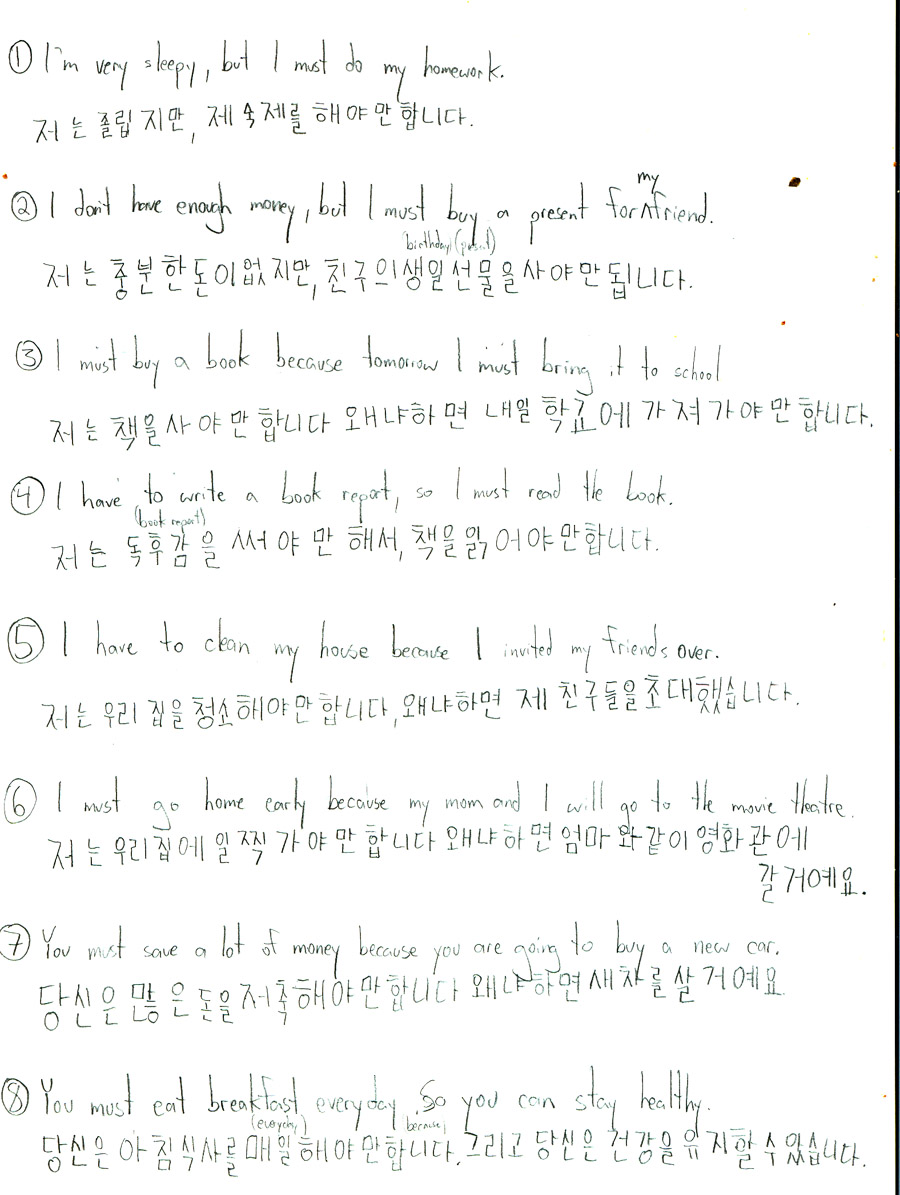 ① I'm very sleepy, but I must do my homework.
저는 졸립지만, 제 숙제를 해야만합니다.
my
② I don't have enough money, but I must buy a present for^friend.
birthday (present)
저는 충분한 돈이 없지만, 친구의 생일 선물을 사야만 됩니다.
③ I must buy a book because tomorrow I must bring it to school
저는 책을 사야만 합니다 왜냐하면 내일 학교에 가져가야만 합니다.
④ I have to write a book report, so I must read the book.
(book report)
저는 독후감을 써야만 해서, 책을 읽어야만합니다.
⑤ I have to clean my house because I invited my friends over.
저는 우리 집을 청소해야만 합니다, 왜냐하면 제 친구들을 초대했습니다.
⑥ I must go home early because my mom and I will go to the movie theatre.
저는 우리집에 일찍 가야만 합니다 왜냐하면 엄마와 같이 영화관에
갈 거예요.
⑦ You must save a lot of money because you are going to buy a new car.
당신은 많은 돈을 저축해야만 합니다 왜냐하면 새 차를 살 거예요
⑧ You must eat breakfast everyday so you can stay healthy.
(everyday) because
당신은 아침식사를 매일 해야만 합니다. 그리고 당신은 건강을 유지할 수 있습니다.